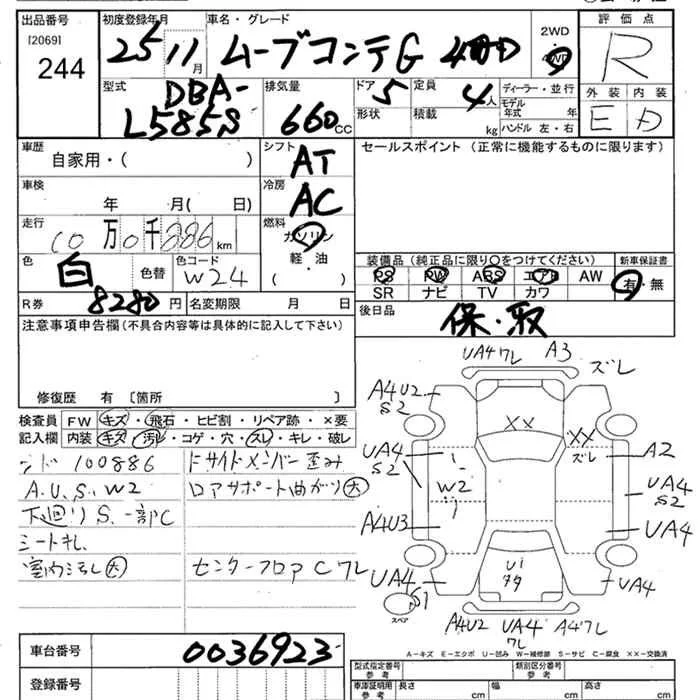 出品番号
[2069]
244
初度登録年月
25 11 月
車名・グレード
ムーブコンテG 4WD
2WD
4WD
評価点
R
型式
DBA-
L585S
排気量
660 cc
ドア
5
形状
定員
4 人
積載
kg
ディーラー・並行
モデル
年式 年
ハンドル 左・右
外装 内装
E D
車歴
自家用・( )
シフト
AT
セールスポイント (正常に機能するものに限ります)
車検
年 月( 日)
冷房
AC
走行
10 万 0 千 886 km
燃料
ガソリン
軽・油
( )
色
白
色替
色コード
W24
装備品 (純正品に限り○をつけてください)
新車保証書
PS PW ABS エアB AW
SR ナビ TV カワ
有・無
R券
8280 円
名変期限 月 日
後日品
保・取
注意事項申告欄 (不具合内容等は具体的に記入して下さい)
修復歴 有 〔箇所 〕
検査員
記入欄
FW キズ・飛石・ヒビ割・リペア跡・×要
内装 キズ・汚レ・コゲ・穴・スレ・キレ・破レ
100886
A.U.S.W2
下廻りS.一部C
シートキレ
室内汚れ 大
ドサイドメンバー歪み
ロアサポート曲がり 大
センターフロアCワレ
UA4ワレ
A3
ズレ
A4U2
S2
XX
XX
ズレ
UA4
S2
A2
W2
UA4
S2
A4U3
UA4
UA4
U1
S1
スペア
UA4
A4U2
UA4
ワレ
A4ワレ
A-キズ E-エクボ U-凹み W-補修跡 S-サビ C-腐食 ××-交換済
車台番号
0036923
登録番号
型式指定番号
参考
類別区分番号
参考
車庫証明用
参考
長さ cm
幅 cm
高さ cm